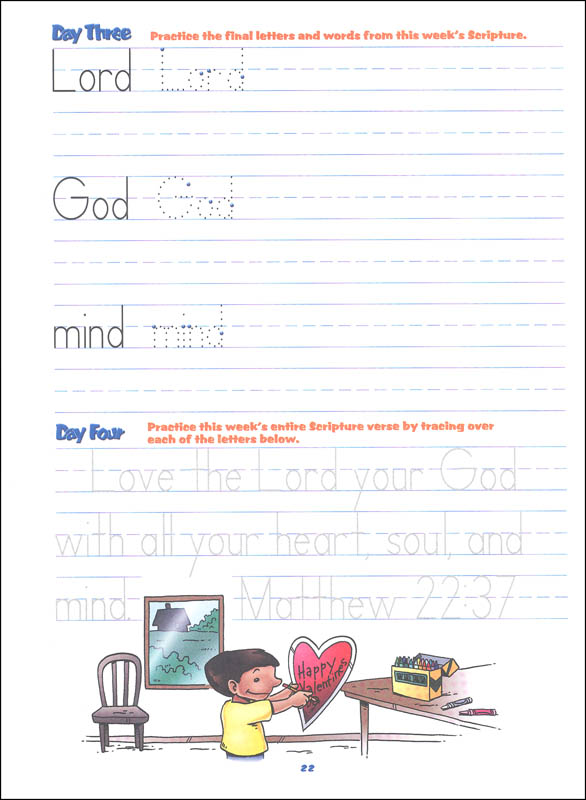 Day Three Practice the final letters and words from this week's Scripture.
Lord Lord
God God
mind mind
Day Four Practice this week's entire Scripture verse by tracing over
each of the letters below.
Love the Lord your God
with all your heart, soul, and
mind. Matthew 22:37
Happy
Valentines
22